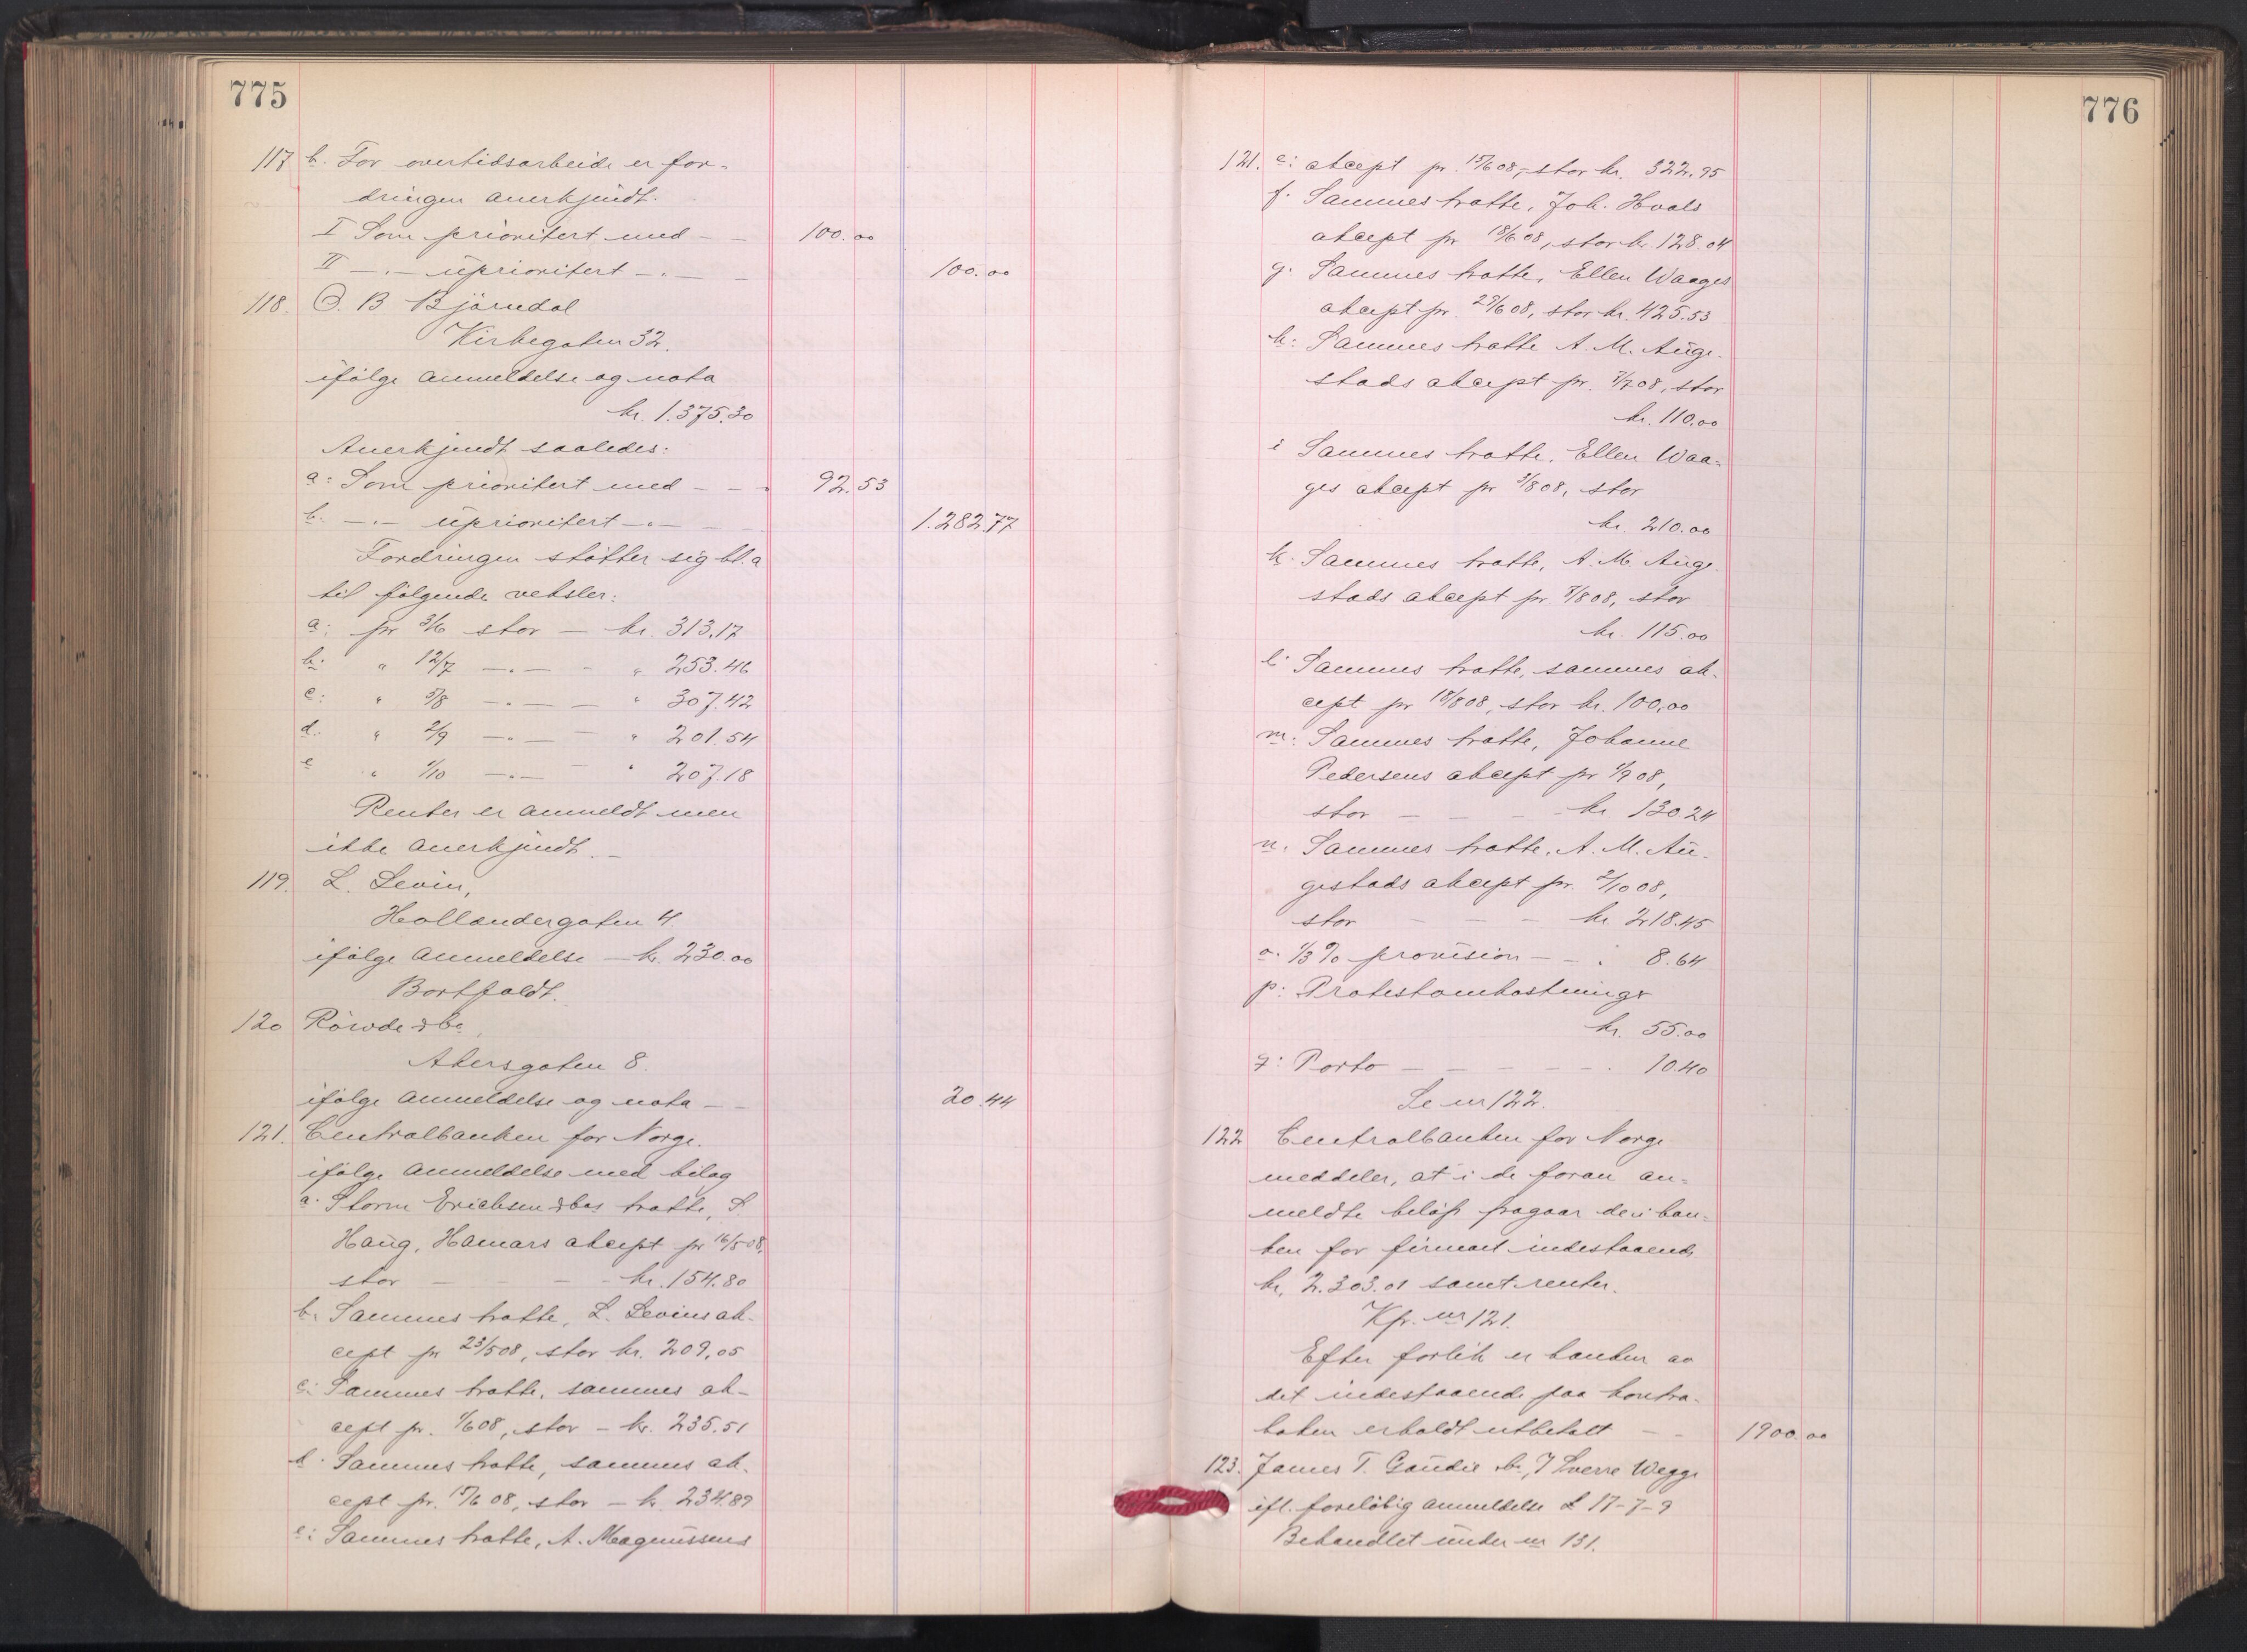 775
117 b. For overtidsarbeide er for-
dringen anerkjendt.
I Som prioritert med - - 100.00
II -"- uprioritert -"- - 100.00
118. O. B Bjørndal
Kirkegaten 32.
ifølge anmeldelse og nota
kr. 1.375.30
Anerkjendt saaledes:
a: Som prioritert med - - - 92.53
b. -"- uprioritert -"- - - 1.282.77
Fordringen støtter sig bl.a
til følgende veksler:
a: pr 3/6 stor - kr. 313.17
b: " 12/7 -"- - " 253.46
c: " 5/8 -"- - " 307.42
d. " 2/9 -"- - " 201.54
e " 1/10 -"- - " 207.18
Renter er anmeldt men
ikke anerkjendt. -
119. L. Levin,
Hollændergaten 4.
ifølge anmeldelse - kr. 230.00
Bortfaldt.
120 & Co
Akersgaten 8.
ifølge anmeldelse og nota - - 20.44
121. Centralbanken for Norge.
ifølge anmeldelse med bilag
a. Storm Erichsen & Cos tratte, S.
Haug, Hamars akcept pr 16/5 08,
stor - - - - kr. 154.80
b. Sammes tratte, L. Levins ak-
cept pr 23/5 08, stor kr. 209.05
c: Sammes tratte, sammes ak-
cept pr. 1/6 08, stor - kr. 235.51
d. Sammes tratte, sammes ak-
cept pr. 15/6 08, stor - kr. 234.89
e: Sammes tratte, A. Magnussens
776
121. e: akcept pr. 15/6 08, - stor kr. 322.95
f. Sammes tratte, Joh. Hvals
akcept pr 18/6 08, stor kr. 128.04
g. Sammes tratte, Ellen Waages
akcept pr. 27/6 08, stor kr. 425.53
h: Sammes tratte A. M. Auge-
stads akcept pr. 7/7 08, stor
kr. 110.00
i Sammes tratte, Ellen Waa-
ges akcept pr 3/8 08, stor
kr. 210.00
k. Sammes tratte, A. M. Auge-
stads akcept pr 7/8 08, stor
kr. 115.00
l. Sammes tratte, sammes ak-
cept pr 18/8 08, stor kr. 100.00
m: Sammes tratte, Johanne
Pedersens akcept pr 1/9 08,
stor - - - - kr 130.24
n. Sammes tratte, A. M. Au-
gestads akcept pr. 2/10 08,
stor - - - kr 218.45
o. 1/3 % provision - - " 8.64
p: Protestomkostninger
kr. 55.00
q: Porto - - - - - 10.40
Se nr 122.
122 Centralbanken for Norge
meddeler, at i de foran an-
meldte beløp fragaar de i ban-
ken for firmaet indestaaende
kr. 2.303.01 samt renter.
Kfr. nr 121.
Efter forlik er banken av
det indestaaende paa kontra-
boken erholdt utbetalt - - 1900.00
123. James T. Goudie & Co, v/ Sverre Wegge
ifl. foreløbig anmeldelse £ 17-7-9
Behandlet under nr 131.